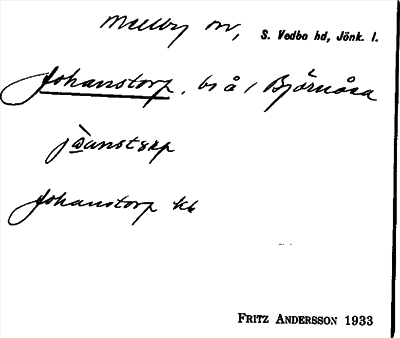 Mellby sn, S. Vedbo hd, Jönk. l.
Johanstorp, bs å / Björnåsa
jòanstərp
Johanstorp kk
FRITZ ANDERSSON 1933